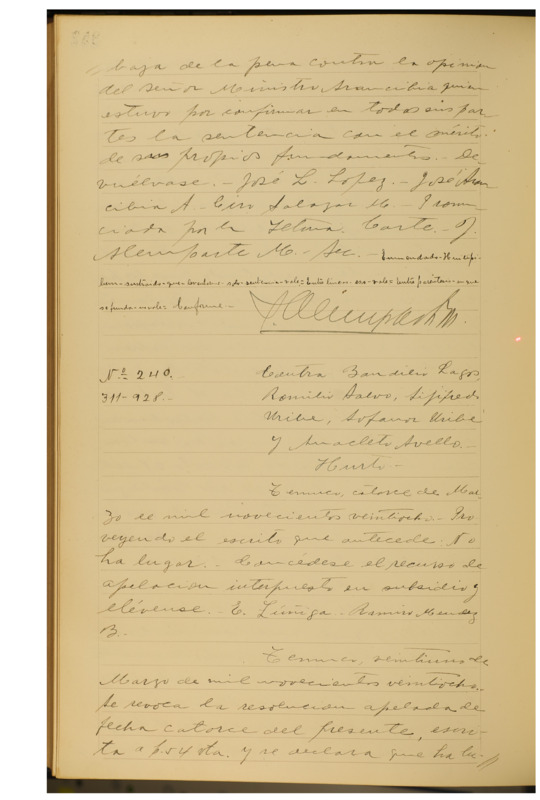 baja de la pena contra la opinion
del señor Ministro Arancibia quien
estuvo por confirmar en todas sus par-
tes la sentencia con el mérito
de sus propios fundamentos.- De-
vuélvase.- José L. Lopez.- José Aran-
cibia A.- Ciro Salazar M.- Pronun-
ciada por la Iltma. Corte.- J.
Alemparte M.- Sec.- Enmendado-
segundo-vale= Conforme.-
J. Alemparte M.
Nº 240.
311-928.-
Contra Baudilio Lagos,
Romilio Salvo, Sijifredo
Uribe, Sofanor Uribe
y Anacleto Avello.-
Hurto.-
Temuco, catorce de Mar-
zo de mil novecientos veintiocho.- Pro-
veyendo el escrito que antecede: No
ha lugar.- Concédese el recurso de
apelacion interpuesto en subsidio y
elévense.- E. Zúñiga.- Ramiro Mendez
B.-
Temuco, veintiuno de
Marzo de mil novecientos veintiocho.-
Se revoca la resolucion apelada de
fecha catorce del presente, escri-
ta a f. 54 vta. y se declara que ha lu-